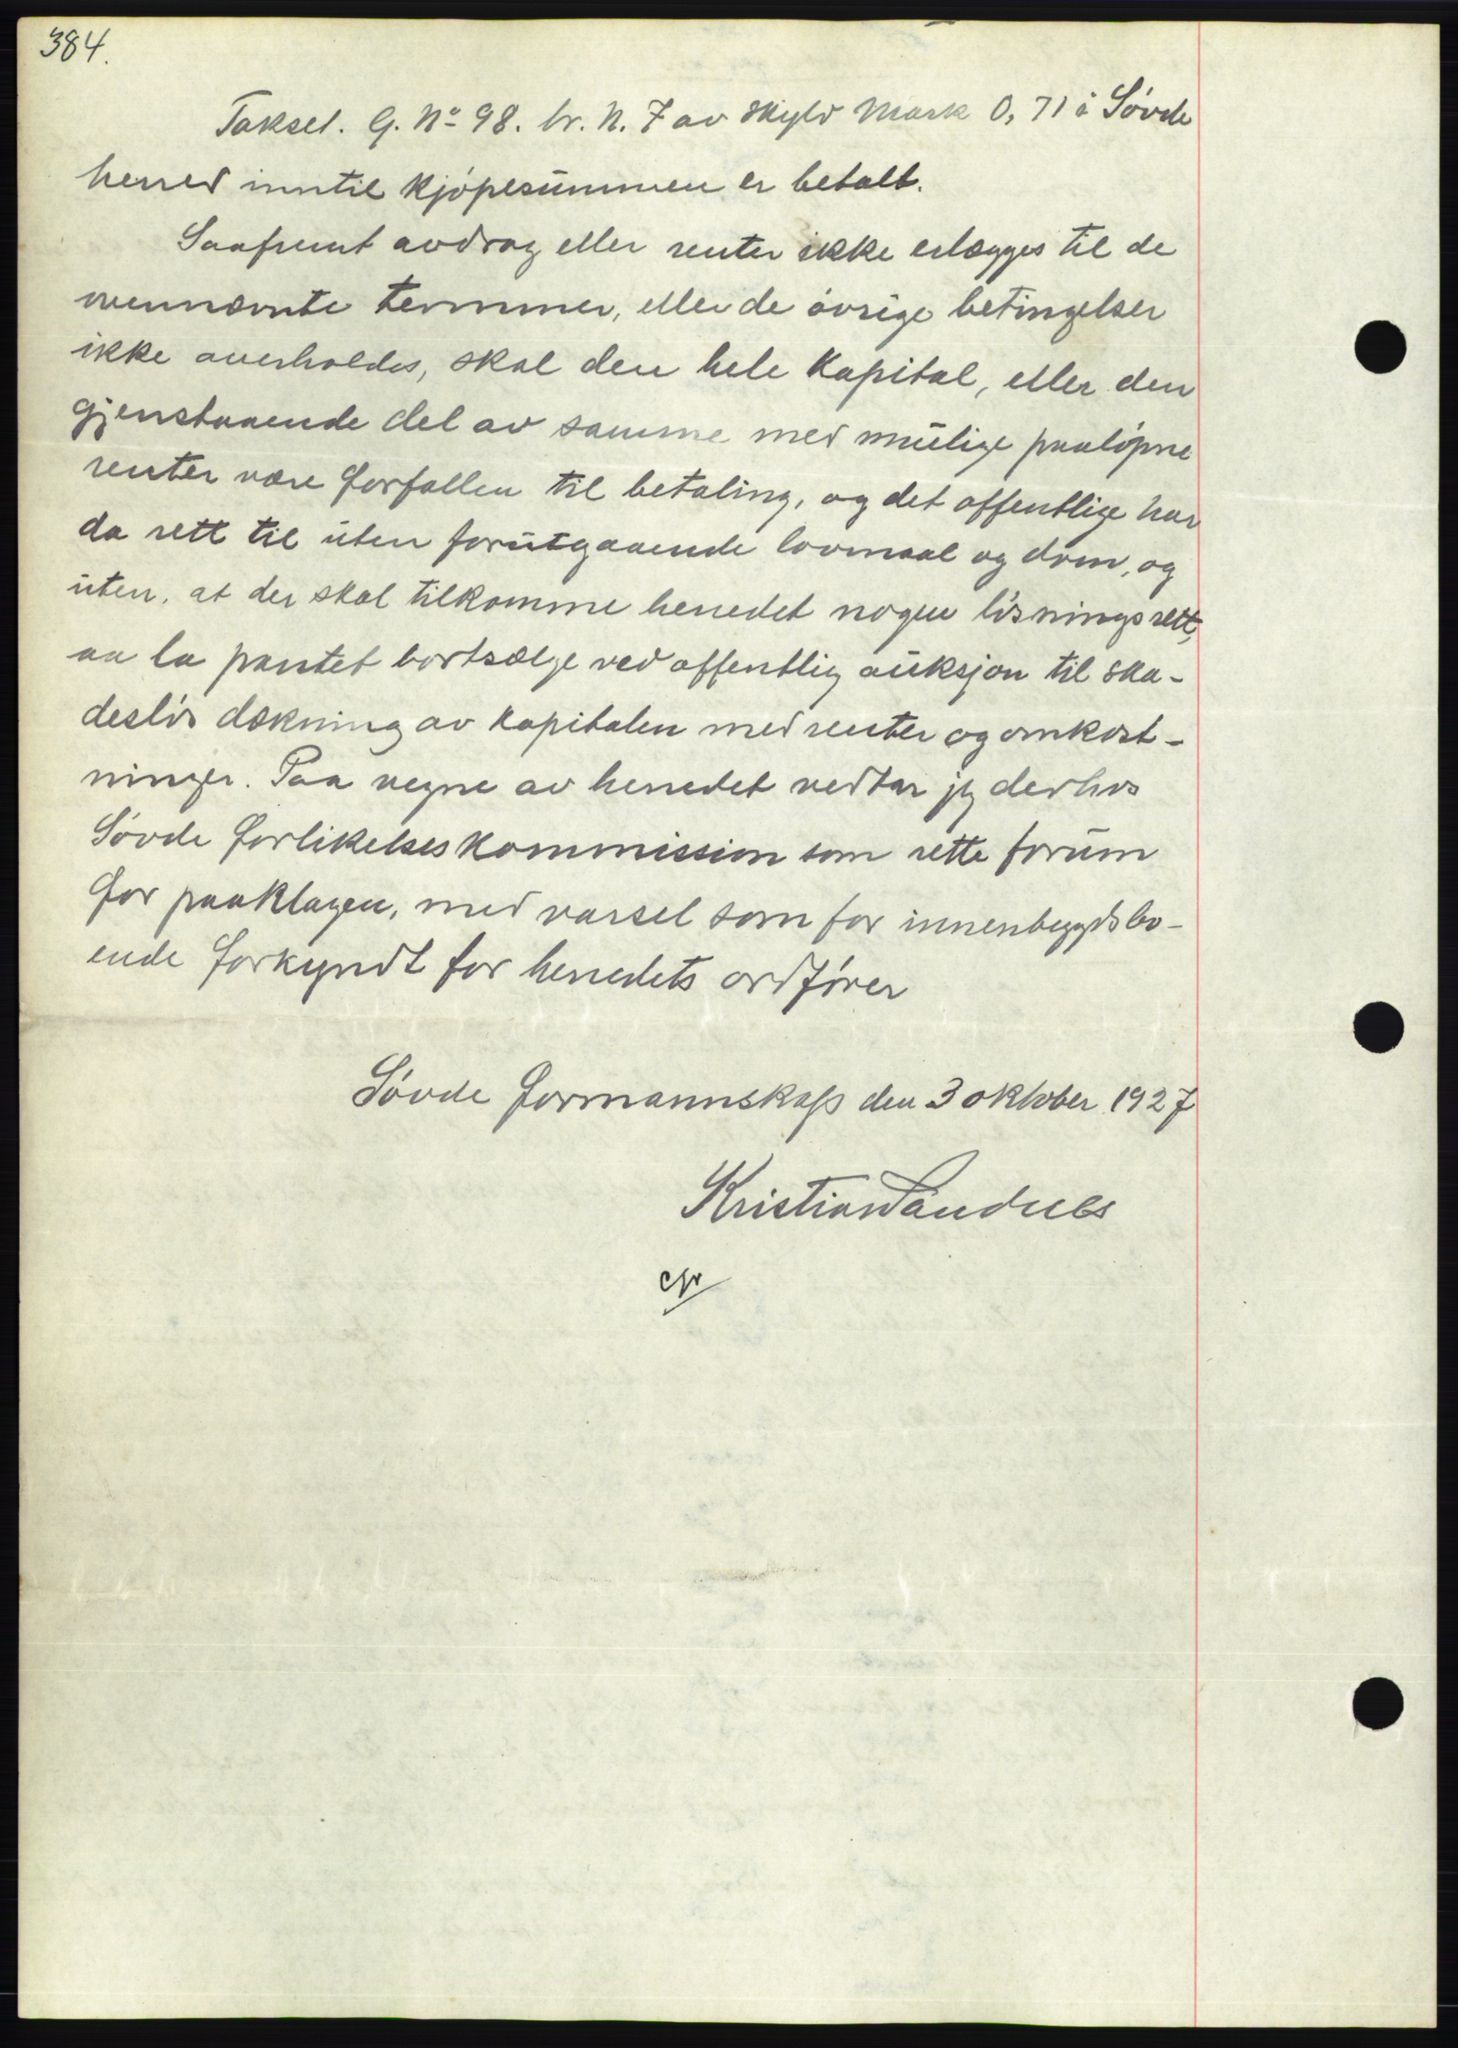 384.
Taksel. G. No 98. br. N. 7 av skyld Mark 0,71 i Søvde
herred inntil kjøpesummen er betalt.
Saafremt avdrag eller renter ikke erlægges til de
ovennævnte terminer, eller de øvrige betingelser
ikke overholdes, skal den hele kapital, eller den
gjenstaaende del av samme med mulige paaløpne
renter være forfallen til betaling, og det offentlige har
da rett til uten forutgaaende lovmaal og dom, og
uten, at der skal tilkomme herredet nogen løsningsrett,
aa la pantet bortsælge ved offentlig auksjon til ska-
desløs dækning av kapitalen med renter og omkost-
ninger. Paa vegne av herredet vedtar jeg derhos
Søvde forlikelseskommission som rette forum
for paaklagen, med varsel som for innenbygdsbo-
ende forkyndt for herredets ordfører
Søvde formannskap den 3 oktober 1927
Kristian